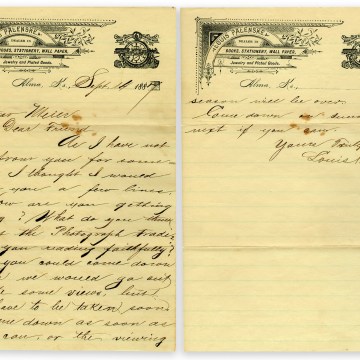 LOUIS PALENSKE,
DEALER IN
BOOKS, STATIONERY, WALL PAPER,
Jewelry and Plated Goods.
Alma, Ks., Sept. 188
Dear Friend
As I have not
you for some-
I thought I would
you a few lines.
How are you getting
? What do you
the Photograph trade
you reading faithfully?
you could come down
we would go out
some views, but
have to be taken soon
come down as soon as
you can or the viewing
LOUIS PALENSKE,
DEALER IN
BOOKS, STATIONERY, WALL PAPER,
Jewelry and Plated Goods.
Alma, Ks., 188
season will be over.
Come down on
next if you can.
Yours
Louis